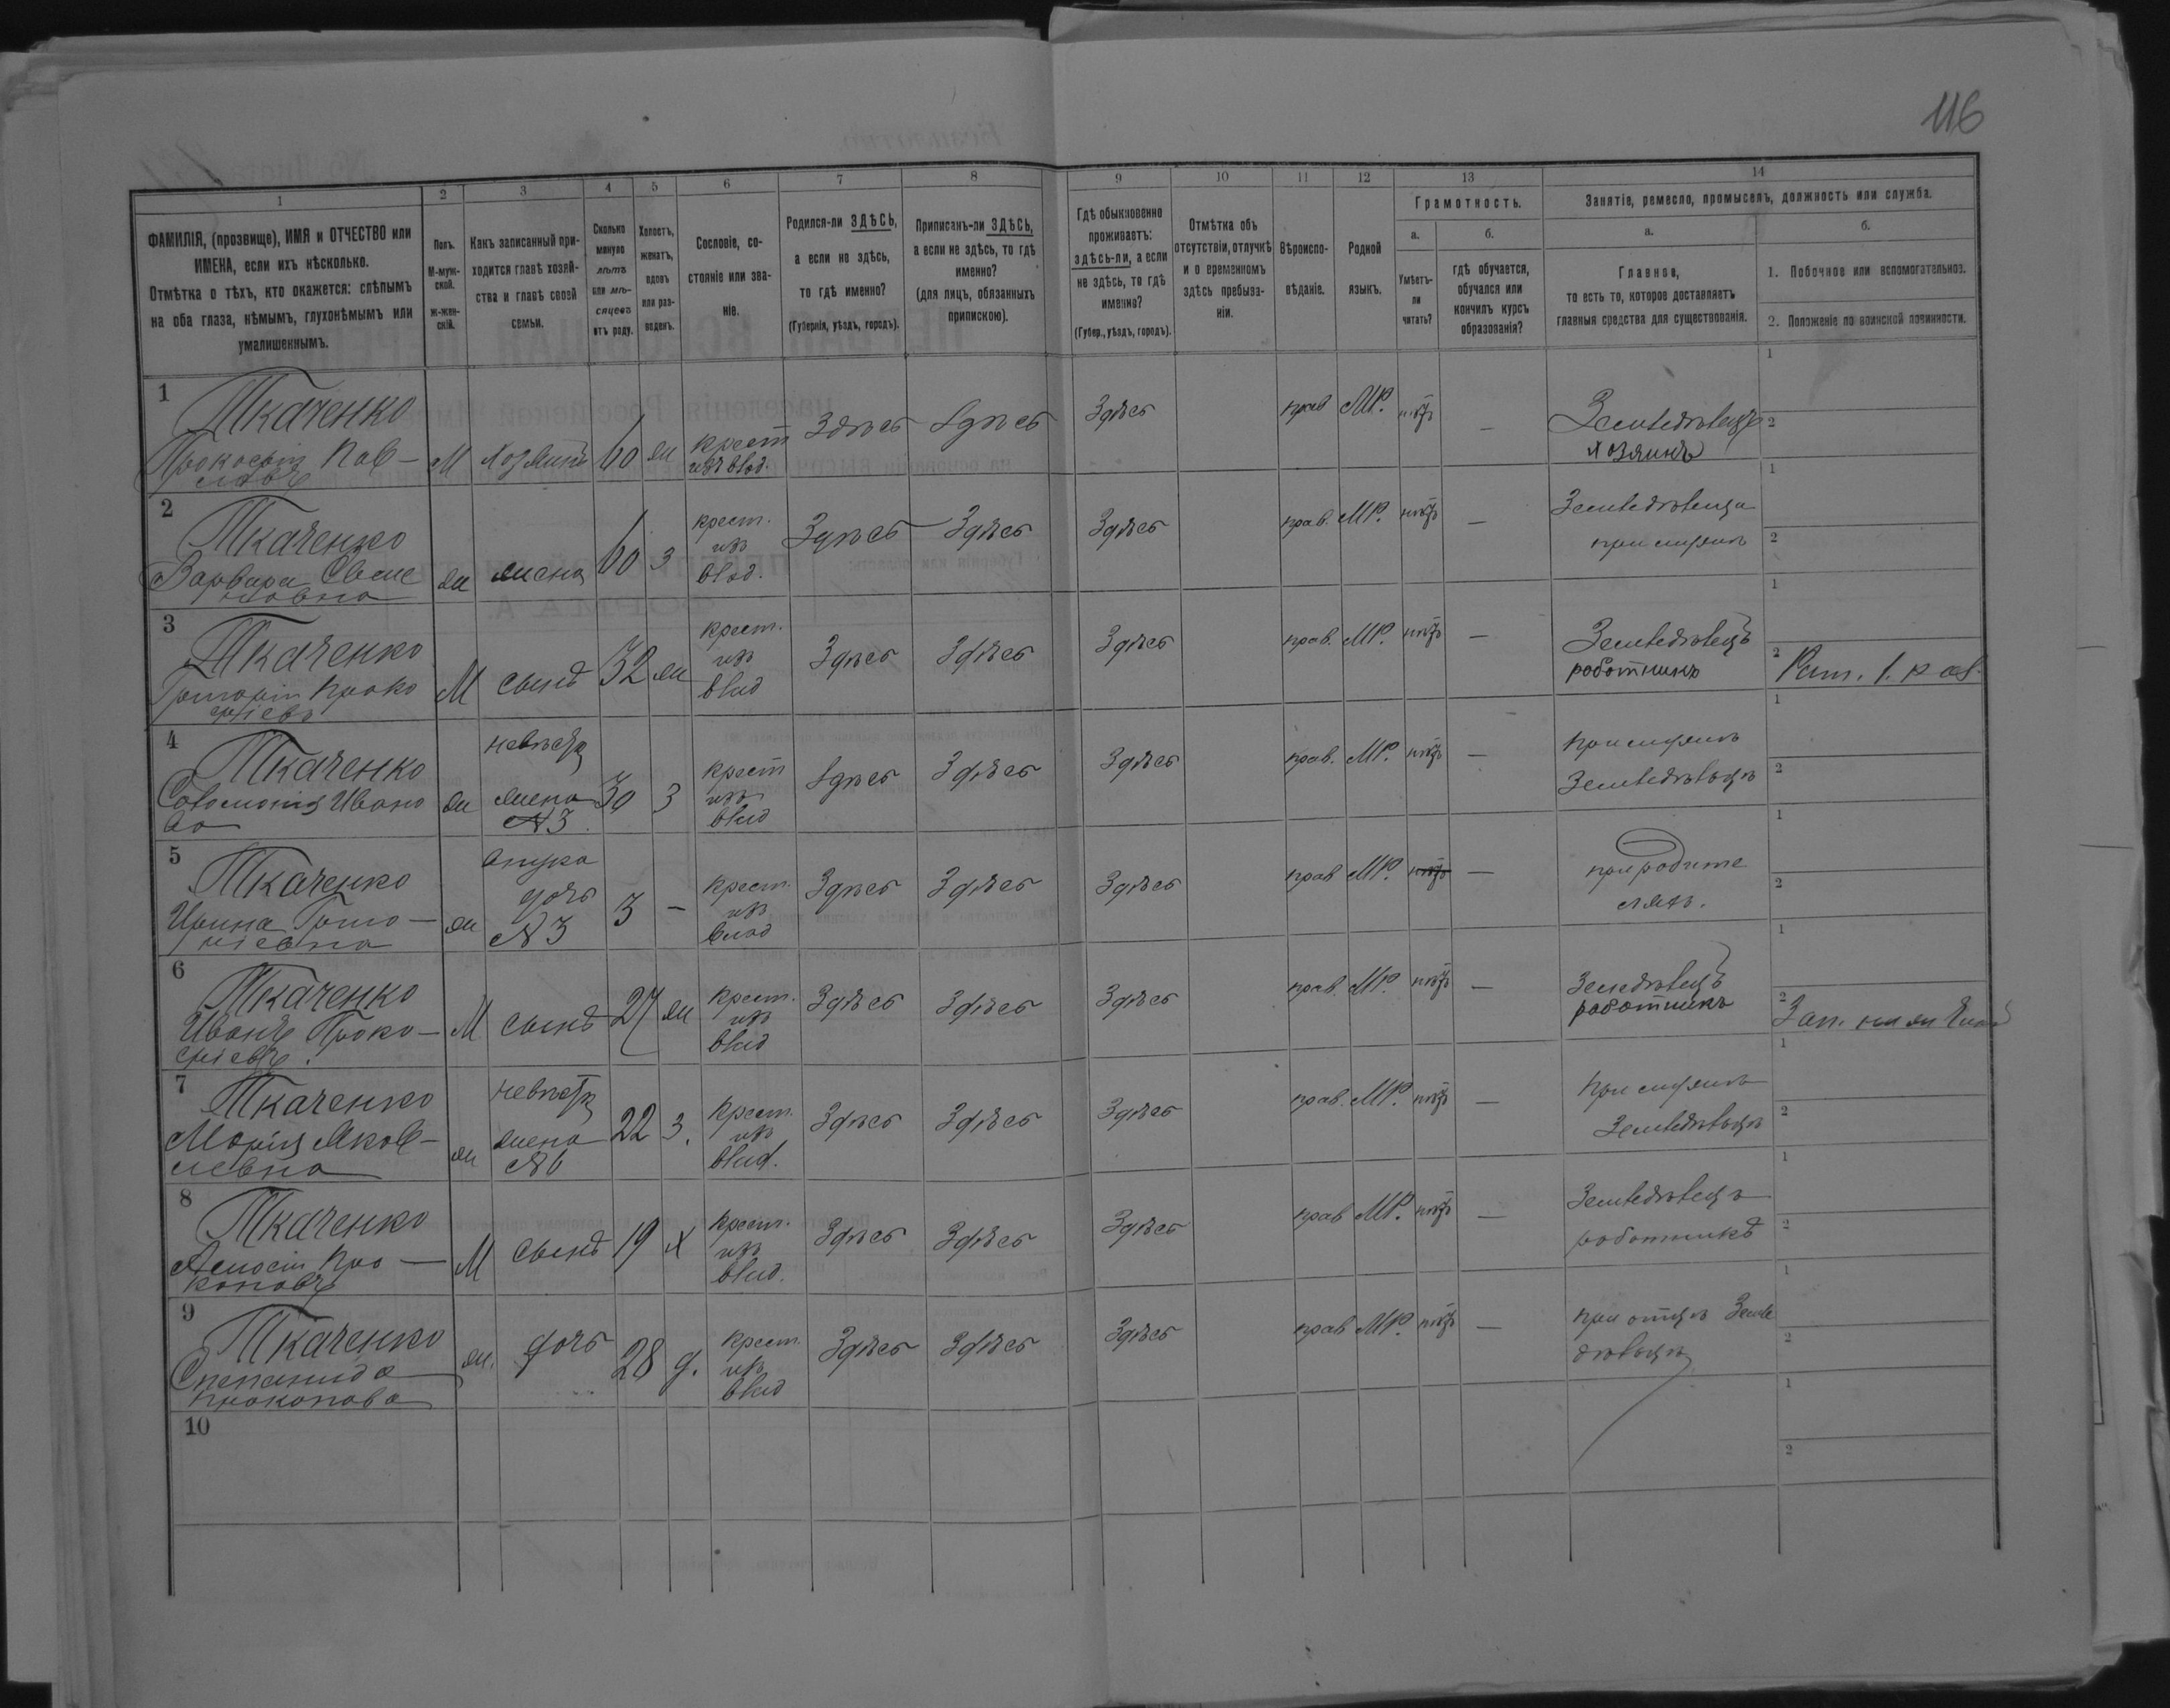 116
1
2
3
4
5
6
7
8
9
10
11
12
13
14
ФАМИЛІЯ, (прозвище), ИМЯ и ОТЧЕСТВО или
ИМЕНА, если ихъ нѣсколько.
Отмѣтка о тѣхъ, кто окажется: слѣпымъ
на оба глаза, нѣмымъ, глухонѣмымъ или
умалишеннымъ.
Полъ.
М-муж-
ской.
Ж-жен-
скій.
Какъ записанный при-
ходится главѣ хозяй-
ства и главѣ своей
семьи.
Сколько
минуло
лѣтъ
или мѣ-
сяцевъ
отъ роду.
Холостъ,
женатъ,
вдовъ
или раз-
веденъ.
Сословіе, со-
стояніе или зва-
ніе.
Родился-ли ЗДѢСЬ,
а если не здѣсь,
то гдѣ именно?
(Губернія, уѣздъ, городъ).
Приписанъ-ли ЗДѢСЬ,
а если не здѣсь, то гдѣ
именно?
(для лицъ, обязанныхъ
припискою).
Гдѣ обыкновенно
проживаетъ:
здѣсь-ли, а если
не здѣсь, то гдѣ
именно?
(Губер., уѣздъ, городъ).
Отмѣтка объ
отсутствіи, отлучкѣ
и о временномъ
здѣсь пребыва-
ніи.
Вѣроиспо-
вѣданіе.
Родной
языкъ.
Грамотность.
а.
Умѣетъ-
ли
читать?
б.
гдѣ обучается,
обучался или
кончилъ курсъ
образованія?
Занятіе, ремесло, промыселъ, должность или служба.
а.
Главное,
то есть то, которое доставляетъ
главныя средства для существованія.
б.
1. Побочное или вспомогательное.
2. Положеніе по воинской повинности.
1
Ткаченко
Прокофій Пав-
ловъ
М Хозяинъ 60 ж крест изъ влад. Здѣсь Здѣсь Здѣсь прав МР. нѣтъ —
Земледѣлецъ
хозяинъ
1
2
2
Ткаченко
Варвара
ж жена 60 З крест. изъ влад. Здѣсь Здѣсь Здѣсь прав. МР. нѣтъ —
Земледѣлица
при мужѣ
1
2
3
Ткаченко
Григорій Проко
фіевъ
М сынъ 32 ж крест. изъ влад Здѣсь Здѣсь Здѣсь прав. МР. нѣтъ —
Земледѣлецъ
работникъ
1
2
4
Ткаченко
Соломонія Ивано
ва
ж невѣстка жена №3 30 З крест изъ влад Здѣсь Здѣсь Здѣсь прав. МР. нѣтъ —
При мужѣ
Земледѣльцѣ
1
2
5
Ткаченко
Ирина Григо-
ріевна
ж внучка дочь №3 3 — крест. изъ влад Здѣсь Здѣсь Здѣсь прав МР. нѣтъ —
при родите
ляхъ.
1
2
6
Ткаченко
Иванъ Проко-
фіевъ.
М сынъ 27 ж крест. изъ влад Здѣсь Здѣсь Здѣсь прав. МР. нѣтъ —
Земледѣлецъ
работникъ
1
2
7
Ткаченко
Марія Яков-
левна
ж невѣстка жена №6 22 З. крест. изъ влад. Здѣсь Здѣсь Здѣсь прав. МР. нѣтъ —
При мужѣ
Земледѣльцѣ
1
2
8
Ткаченко
Про-
коповъ
М сынъ 19 х крест. изъ влад. Здѣсь Здѣсь Здѣсь прав МР. нѣтъ —
Земледѣлецъ
работникъ
1
2
9
Ткаченко
Степанида
Прокопова
ж. дочь 28 д. крест. изъ влад Здѣсь Здѣсь Здѣсь прав МР. нѣтъ —
при отцѣ Земле
дѣльцѣ
1
2
10
1
2